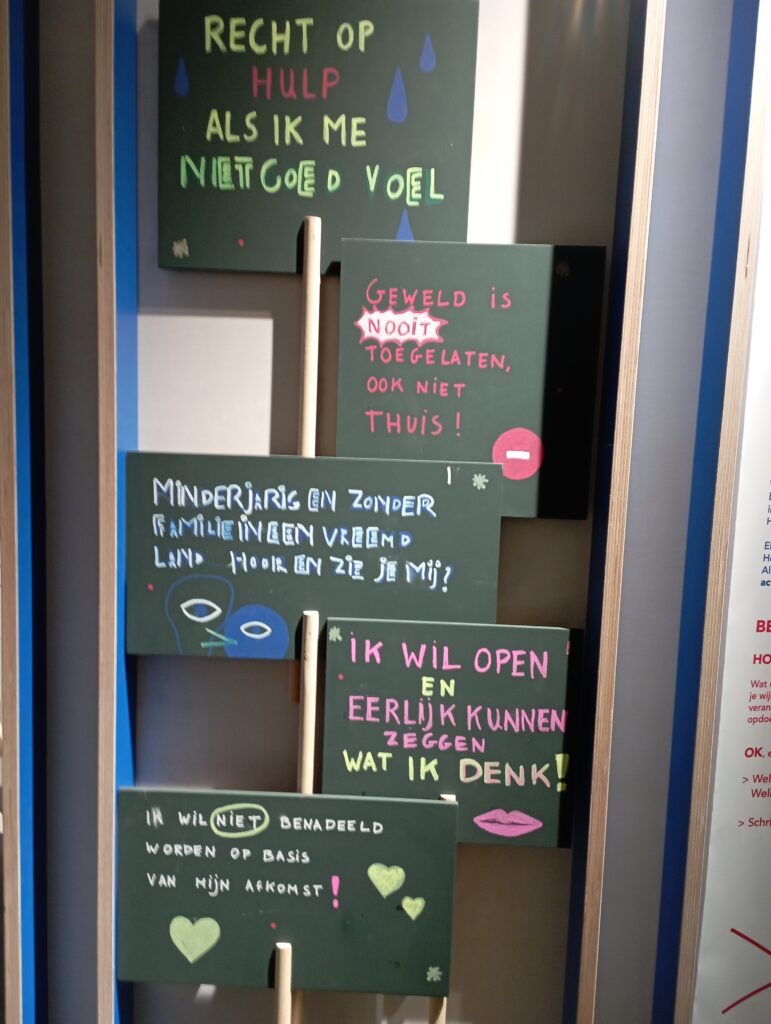 RECHT OP
HULP
ALS IK ME
NIET GOED VOEL
GEWELD IS
NOOIT
TOEGELATEN,
OOK NIET
THUIS!
MINDERJARIG EN ZONDER
FAMILIE IN EEN VREEMD
LAND HOOR EN ZIE JE MIJ?
IK WIL OPEN
EN
EERLIJK KUNNEN
ZEGGEN
WAT IK DENK!
IK WIL NIET BENADEELD
WORDEN OP BASIS
VAN MIJN AFKOMST!
BE
HO
Wat
je wij
veran
opdoe
OK, e
> Wel
Well
> Schri